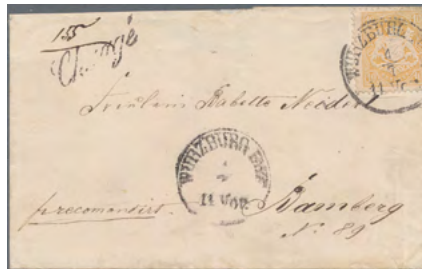 155
Chargé
WÜRZBURG
11 VOR
Fräulein Babette
WÜRZBURG BHF
11 VOR
precomandirt.
Bamberg
N. 89